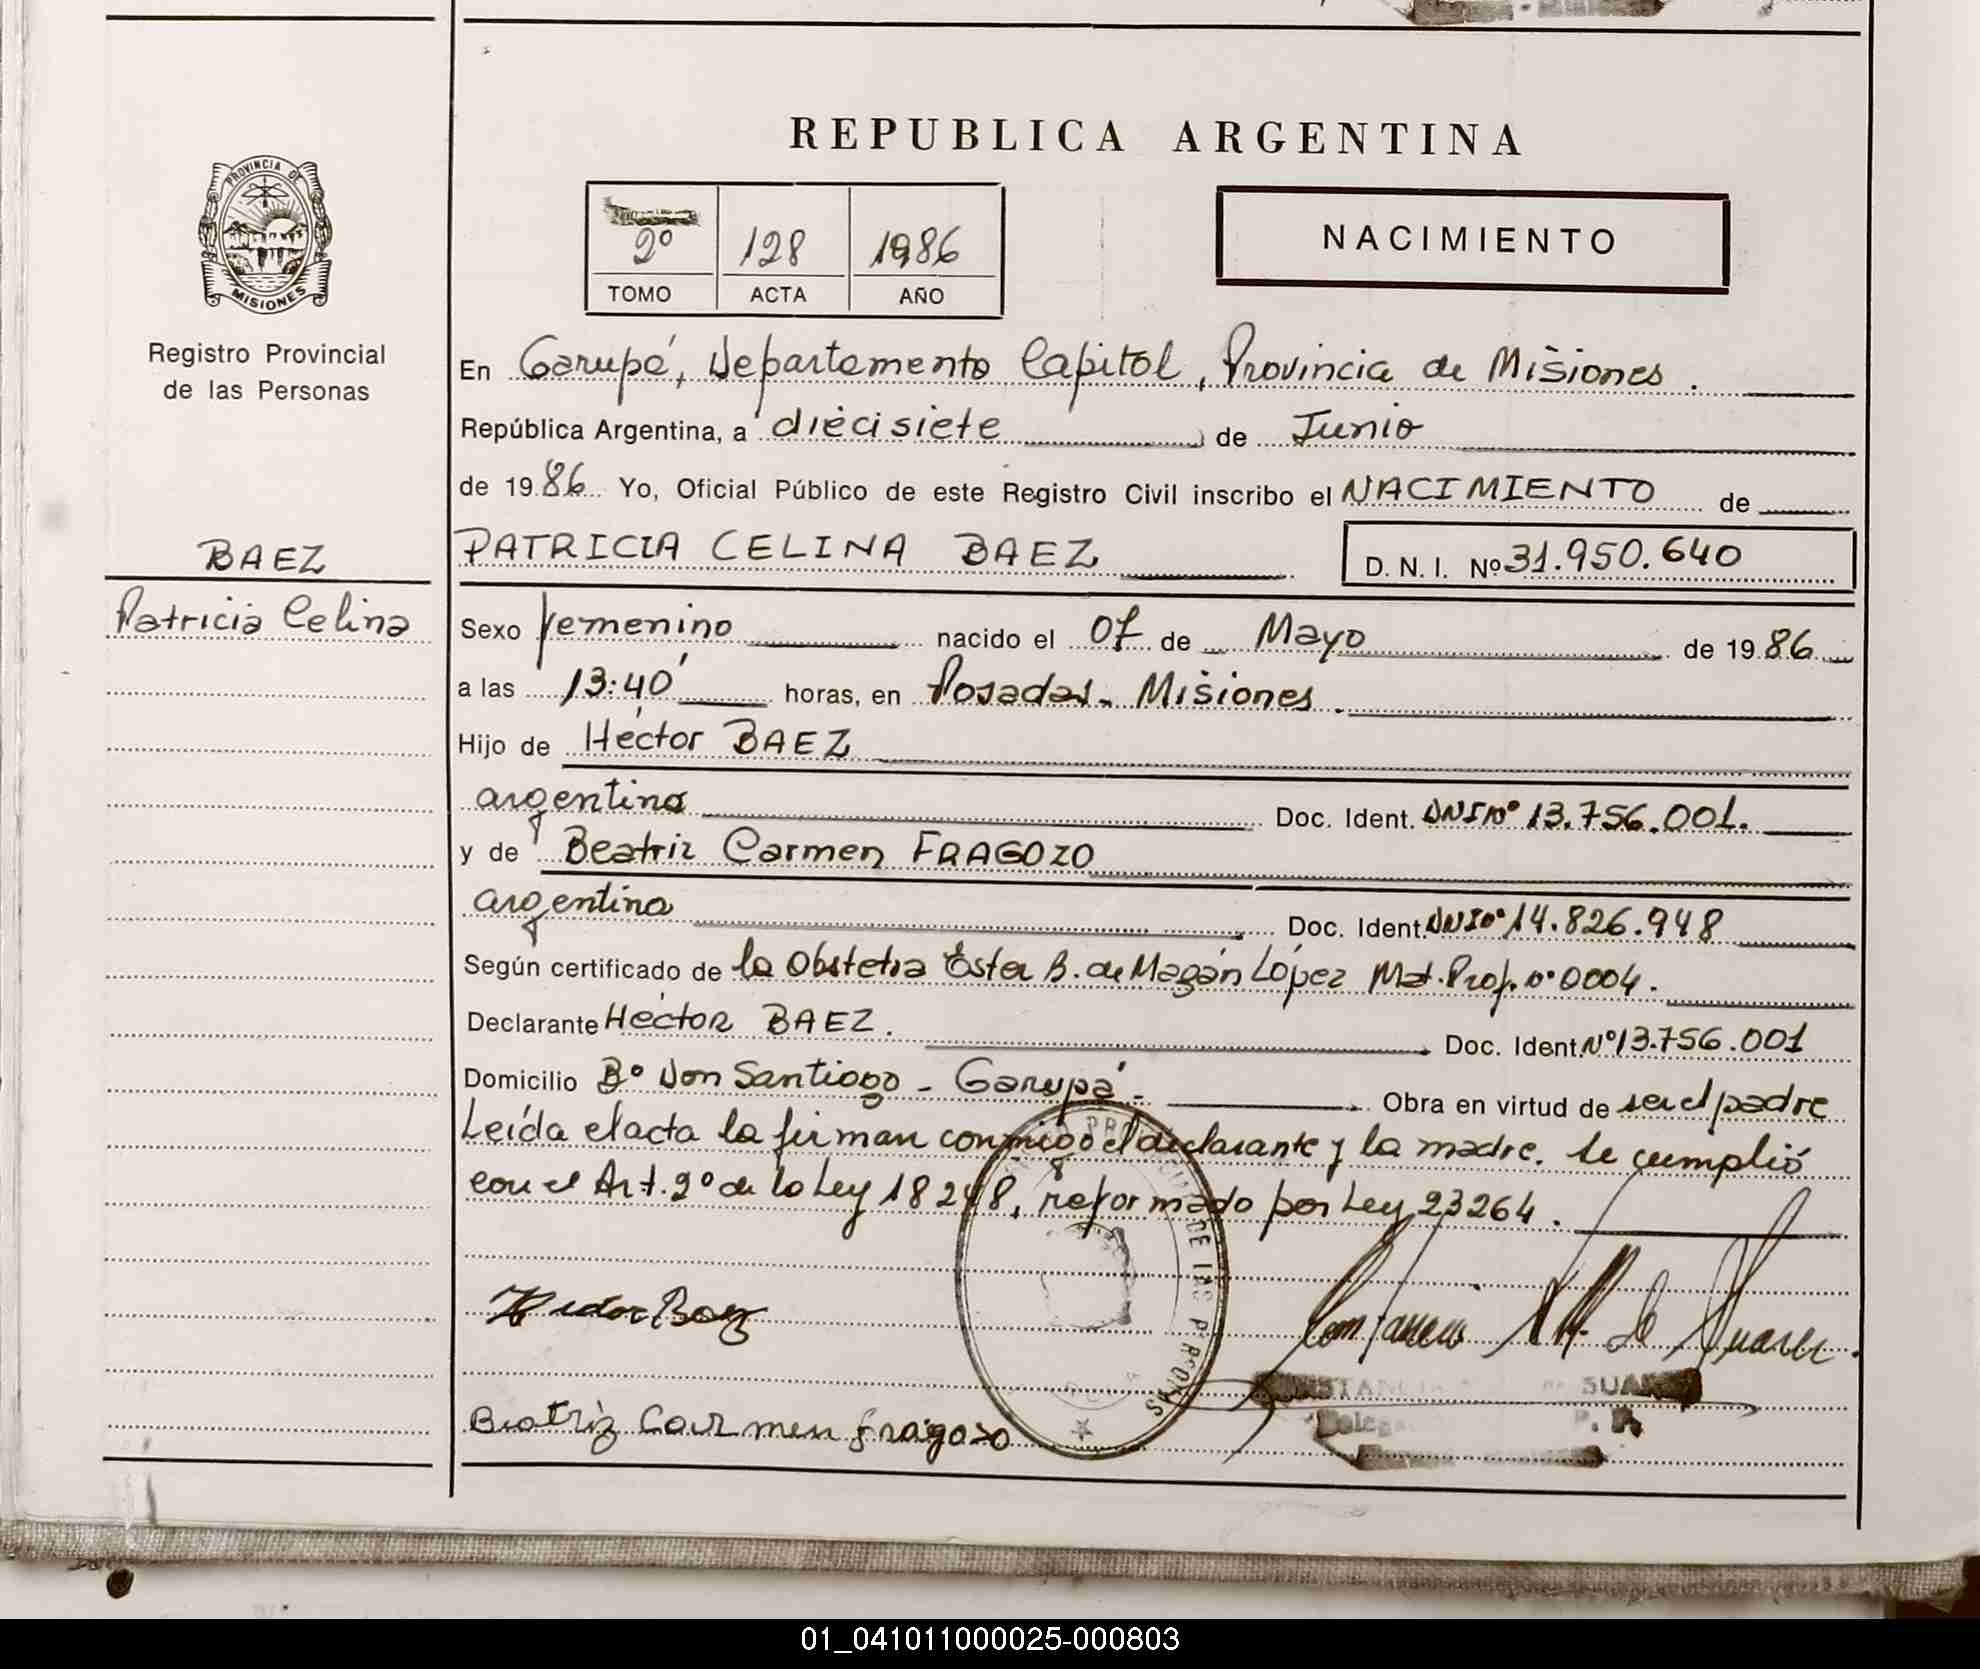 REPUBLICA ARGENTINA
PROVINCIA DE
MISIONES
Registro Provincial
de las Personas
2º 128 1986
TOMO ACTA AÑO
NACIMIENTO
En Garupá, Departamento Capital, Provincia de Misiones.
República Argentina, a diecisiete de Junio
de 1986 Yo, Oficial Público de este Registro Civil inscribo el NACIMIENTO de
BAEZ
Patricia Celina
PATRICIA CELINA BAEZ D. N. I. Nº 31.950.640
Sexo femenino nacido el 07 de Mayo de 1986
a las 13:40' horas, en Posadas - Misiones.
Hijo de Héctor BAEZ
argentino Doc. Ident. DNI nº 13.756.001.
y de Beatriz Carmen FRAGOZO
argentina Doc. Ident. DNI nº 14.826.948
Según certificado de la Obstetra Ester B. de Magán López Mat. Prof. nº 0004.
Declarante Héctor BAEZ. Doc. Ident. Nº 13.756.001
Domicilio Bº Don Santiago - Garupá - Obra en virtud de ser el padre
Leída el acta la firman conmigo el declarante y la madre. Se cumplió
con el Art. 2º de la Ley 18248, reformado por Ley 23264.
DE LAS PERSONAS
Hector Baez
Beatriz Carmen fragozo
de Suarez
SUAREZ
01_041011000025-000803